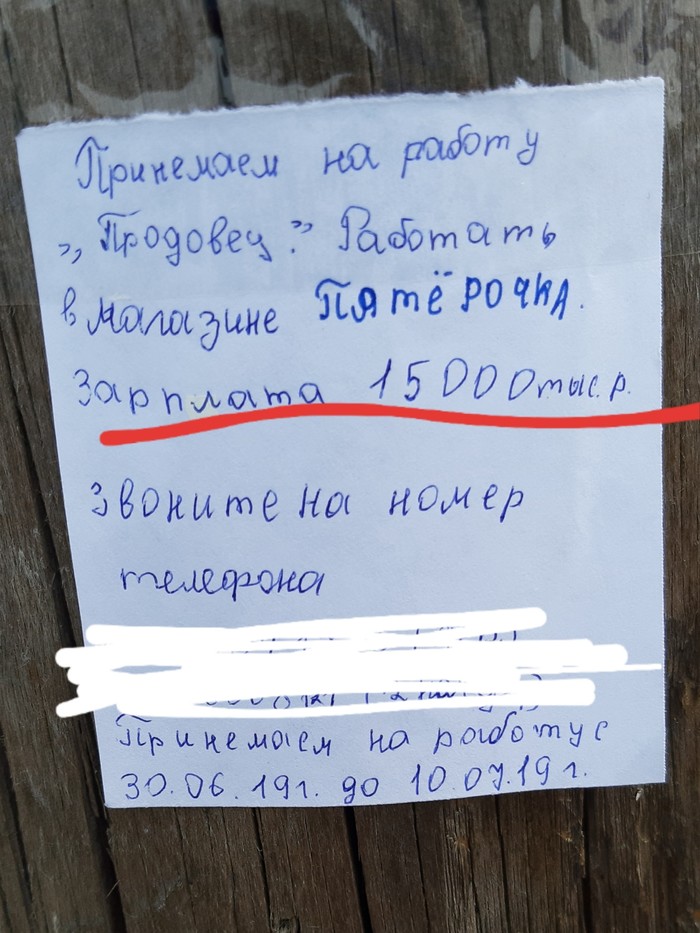 Принемаем на работу
„Продовец." Работать
в магазине ПЯТЁРОЧКА.
Зарплата 15000тыс.р.
Звоните на номер
телефона
Принемаем на работус
30.06.19г. до 10.07.19г.